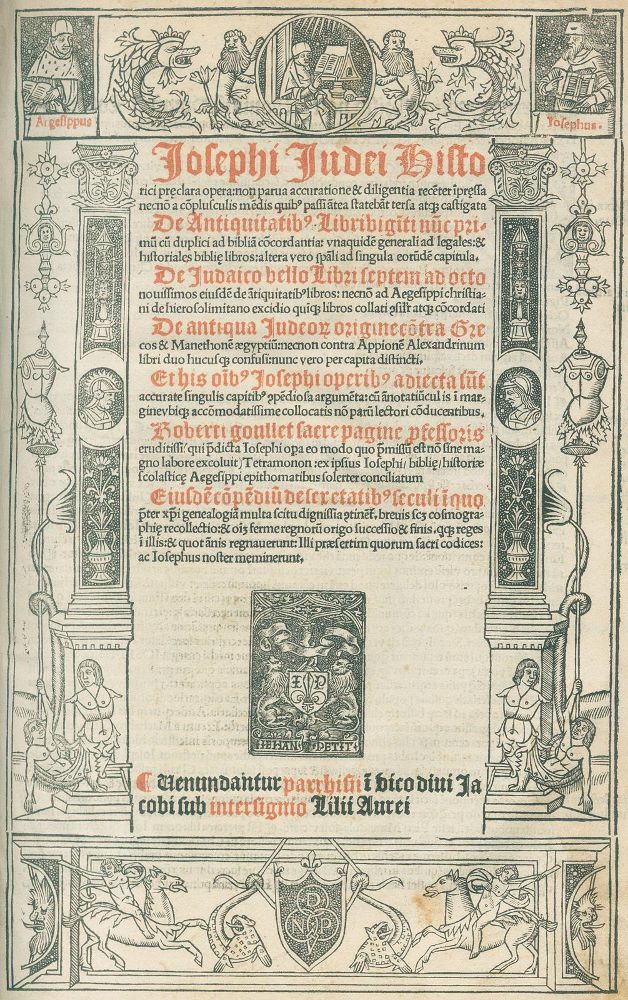 Aegesippus
Josephus.
Josephi Judei Histo
rici pręclara opera: non parua accuratione & diligentia recēter īpręssa
necnō a cōplusculis mēdis quibꝰ passī ātea statebāt tersa atqꝫ castigata
De Antiquitatibꝰ Libri bigīti nūc pri-
mū cū duplici ad bibliā cōcordantia: vnaquidē generali ad legales: &
historiales biblię libros: altera vero spāli ad singula eorūdē capitula.
De Judaico bello Libri septem ad octo
nouissimos eiusdē de ātiquitatibꝰ libros: necnō ad Aegesippi christia-
ni de hierosolimitano excidio quīqꝫ libros collati atqꝫ cōcordati
De antiqua Judeoꝝ origine cōtra Gre
cos & Manethonē ægyptiū: necnon contra Appionē Alexandrinum
libri duo hucusqꝫ confusi: nunc vero per capita distincti.
Et his oībꝰ Josephi operibꝰ adiecta sūt
accurate singulis capitibꝰ ꝯpēdiosa argumēta: cū ānotatiūculis ī mar-
gineubiqꝫ accōmodatissime collocatis nō parū lectori cōducentibus.
Roberti goullet sacre pagine ꝓfessoris
eruditissi qui p̄dicta Iosephi opa eo modo quo p̄missū est nō sine ma
gno labore excoluit/ Tetramonon: ex ipsius Iosephi/ biblię/ historiæ
scolasticę Aegesippi epithomatibus solerter conciliatum
Eiusdē cōpēdiū de sex etatibꝰ seculi ī quo
p̄ter xp̄i genealogiā multa scitu dignissīa ꝯtinēt, breuis scꝫ cosmogra-
phię recollectio: & oīꝫ ferme regnorū origo successio & finis, qqꝫ reges
ī illis: & quot ānis regnauerunt: Illi præsertim quorum sacri codices:
ac Iosephus noster meminerunt.
I P
IEHAN PETIT
¶ Uenundantur parrhisii ī vico diui Ja
cobi sub intersignio Lilii Aurei
P
N P